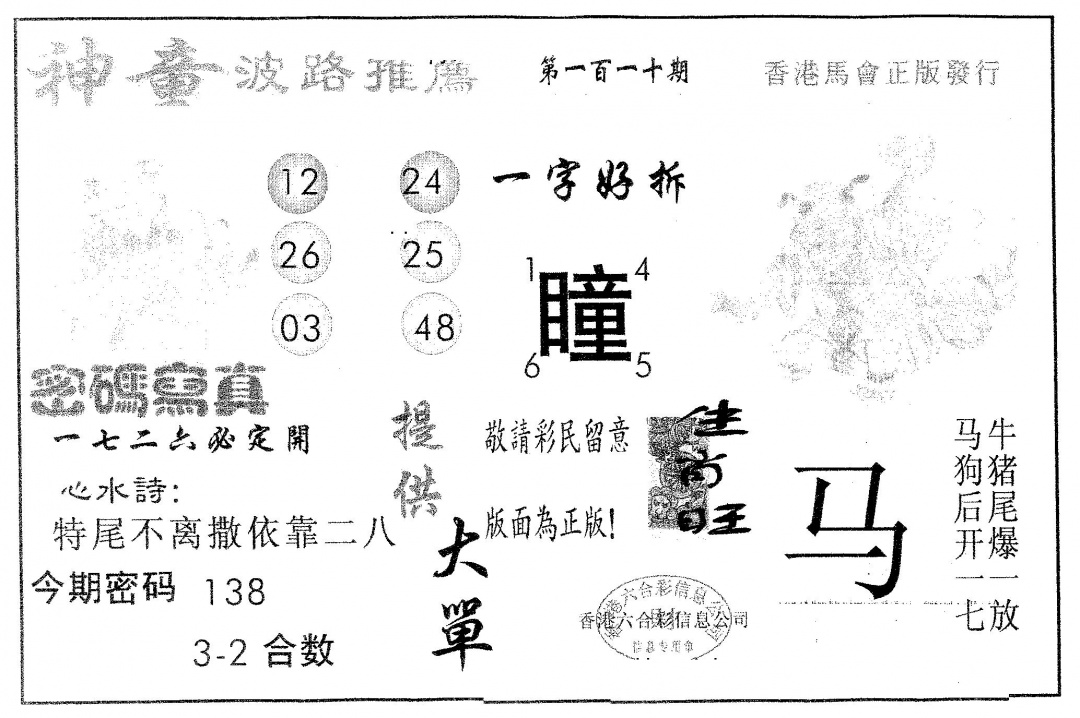 神童 波路推薦 第一百一十期 香港馬會正版發行
12 24
26 25
03 48
一字好拆
1 4
瞳
6 5
密碼寫真
一七二六必定開
心水詩：
特尾不离撒依靠二八
今期密码 138
3-2 合数
提供
大單
敬請彩民留意
版面為正版！
生肖旺
马
牛猪尾爆一放
马狗后开一七
香港六合彩信息公司
香港六合彩信息公司
信息专用章